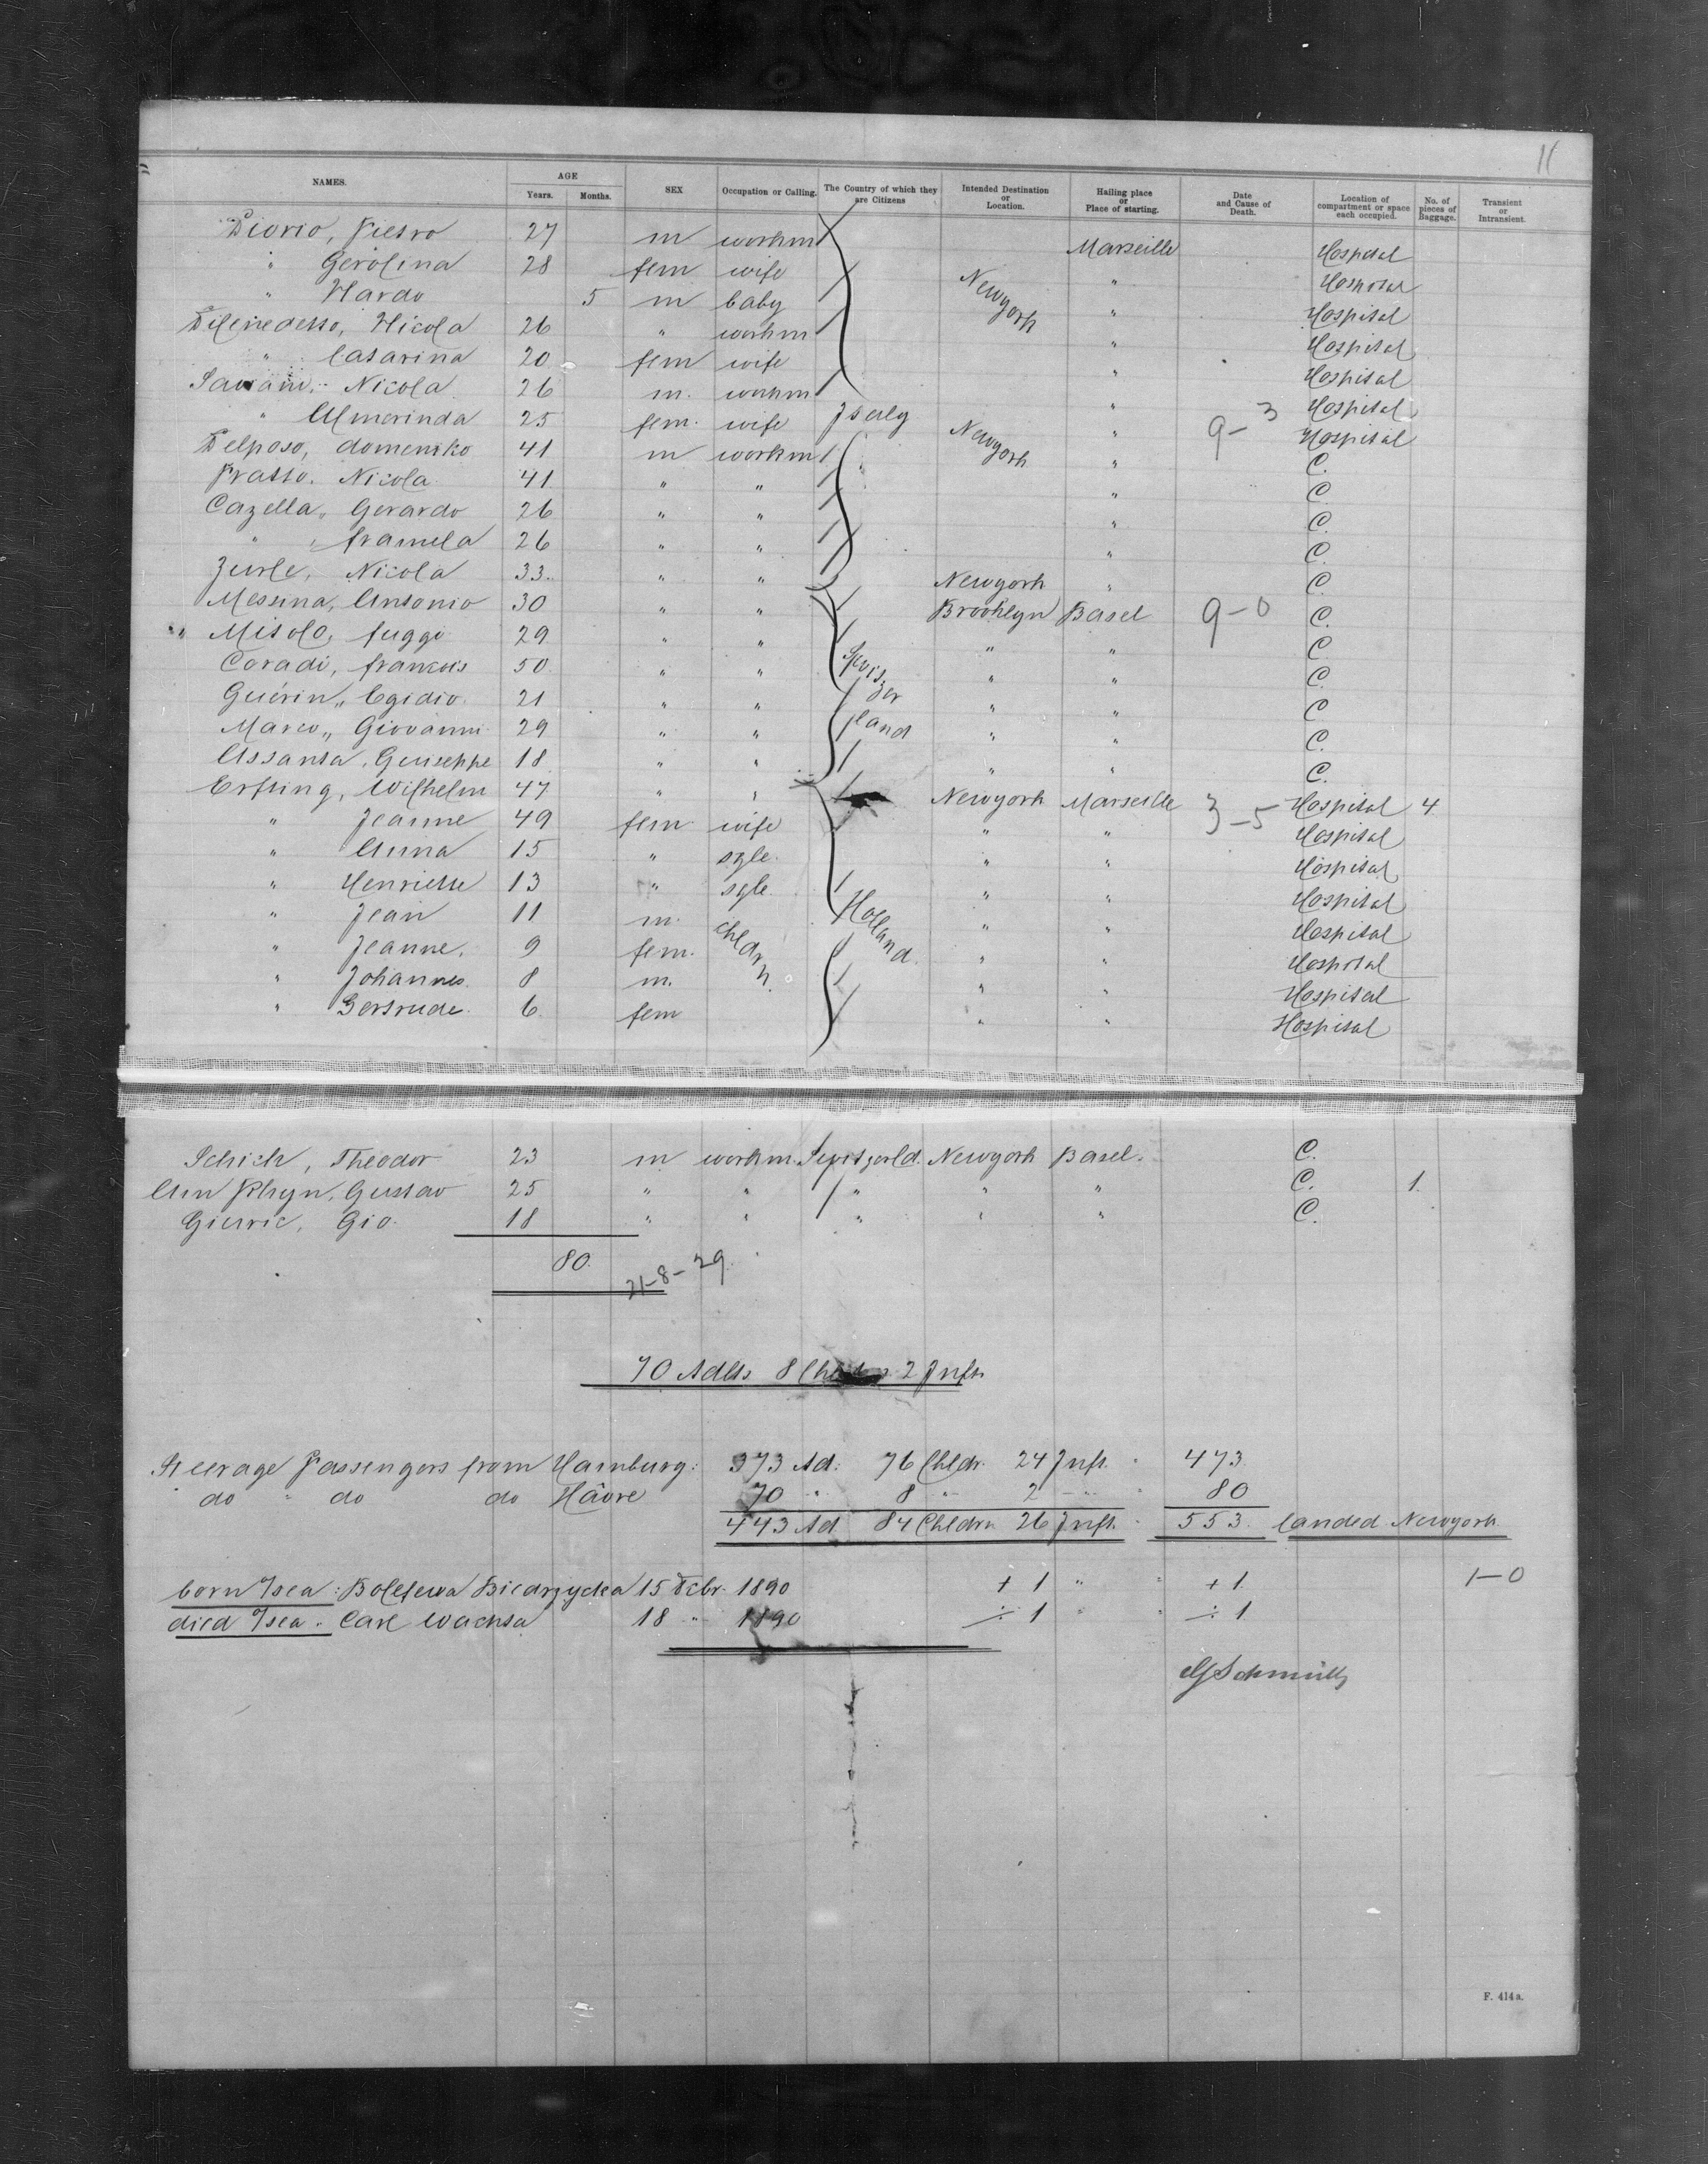 11
NAMES. AGE Years. Months. SEX Occupation or Calling. The Country of which they are Citizens Intended Destination or Location. Hailing place or Place of starting. Date and Cause of Death. Location of compartment or space each occupied. No. of pieces of Baggage. Transient or Intransient.
Diorio, Pietro 27 m workm Marseille Hospital
" Gerolina 28 fem wife Newyork " Hospital
" Nardo 5 m baby " Hospital
Nicola 26 " workm " Hospital
" Catarina 20 fem wife " Hospital
Nicola 26 m. workm " Hospital
" Almerinda 25 fem. wife Italy Newyork " 9-3 Hospital
Delposo, domeniko 41 m workm " C.
Pratto, Nicola 41 " " " C.
Cazella, Gerardo 26 " " " C.
" framela 26 " " " C.
Zurle, Nicola 33 " " Newyork " C.
Messina, Antonio 30 " " Brooklyn Basel 9-0 C.
" Misolo, fuggi 29 " " " " C.
Coradi, francois 50 " " Switzerland " " C.
Guérin, Egidio 21 " " " " C.
Marco, Giovanni 29 " " " " C.
Assanta, Guiseppe 18 " " " " C.
Wilhelm 47 " " Newyork Marseille 3-5 Hospital 4
" Jeanne 49 fem wife " " Hospital
" Anna 15 " sgle. " " Hospital
" Henriette 13 " sgle. " " Hospital
" Jean 11 m. chldrn. Holland. " " Hospital
" Jeanne. 9 fem. " " Hospital
" Johannes. 8 m. " " Hospital
" Gertrude. 6 fem " " Hospital
Schick, Theodor 23 m workm. Switzerld. Newyork Basel. C.
Am Rhyn, Gustav 25 " " " " " C. 1.
Gio. 18 " " " " " C.
80.
21-8-29.
70 Adlts 8 2 Infts
Steerage Passengers from Hamburg: 373 Ad. 76 Chldr. 24 Inft. " 473.
do " do do Hâvre 70 " 8 " 2 " " 80
443 Ad 84 Chldrn 26 Inft. " 553. landed Newyork.
born /sea: Boleslewa Biedrzycka 15 Febr. 1890 + 1 " " + 1. 1-0
died /sea: Carl Wachsa 18 " 1890 ÷ 1 " " ÷ 1
F. 414a.